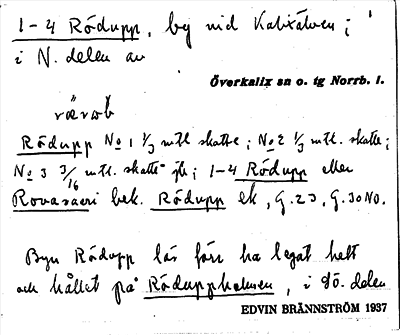 1-4 Rödupp, by vid Kalixälven;
i N. delen av
Överkalix sn o. tg Norrb. l.
Rödupp No 1 1/3 mtl skatte; No 2 1/3 mtl. skatte;
No 3 3/16 mtl. skatte jb; 1-4 Rödupp eller
Rovasaari bek. Rödupp ek, G. 23, G. 30 NO.
Byn Rödupp lär förr ha legat helt
och hållet på Röduppholmen, i sö. delen
EDVIN BRÄNNSTRÖM 1937